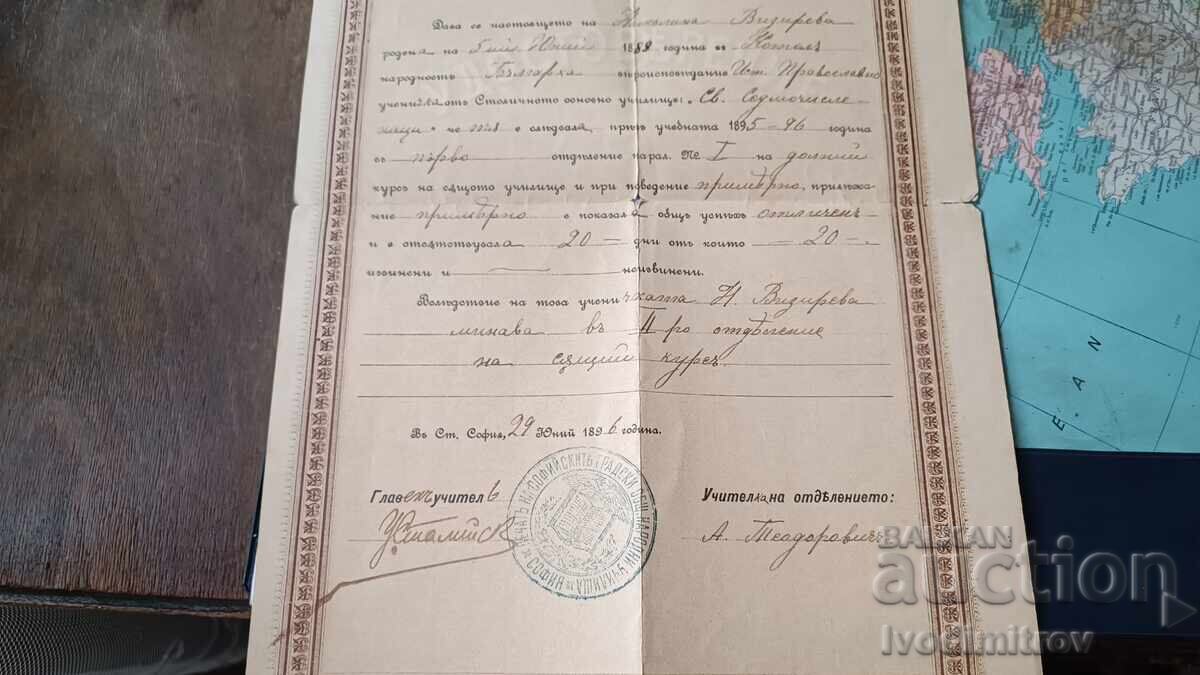 Дава се настоящето на Николина Визирева
родена на 5ий Юний 1889 година въ Котелъ
народность Българка вѣроисповѣдание Ист. Православно
ученичка отъ Столичното основно училище: „Св. Седмочисле-
ници“ че тя е слѣдвала, прѣзъ учебната 1895-96 година
въ първо отдѣление парал. № I на долний
курсъ на сѫщото училище и при поведение примѣрно, прилѣжа-
ние примѣрно е показала общъ успѣхъ отличенъ
и е отсѫтствувала 20 — дни отъ които — 20 —
извинени и — неизвинени.
Вслѣдствие на това ученичката Н. Визирева
минава въ II ро отдѣление
на сѫщий курсъ.
Въ Ст. София, 29 Юний 1896 година.
Главенъ учител
Учителка на отдѣлението:
А. Теодоровичъ
ПЕЧАТЪ НА СОФИЙСКИТѢ ГРАДСКИ ОБЩ. НАРОДНИ УЧИЛИЩА
СОФИЯ
E A N
BALKAN
auction
Ivodimitrov